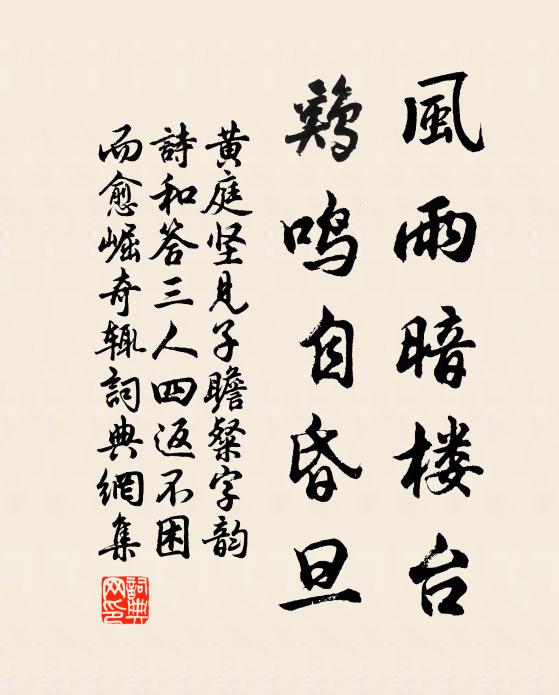 風雨暗楼台
鷄鳴自昏旦
黄庭坚見子瞻粲字韵
詩和答三人四返不困
而愈崛奇辄詞典網集
詞典网印